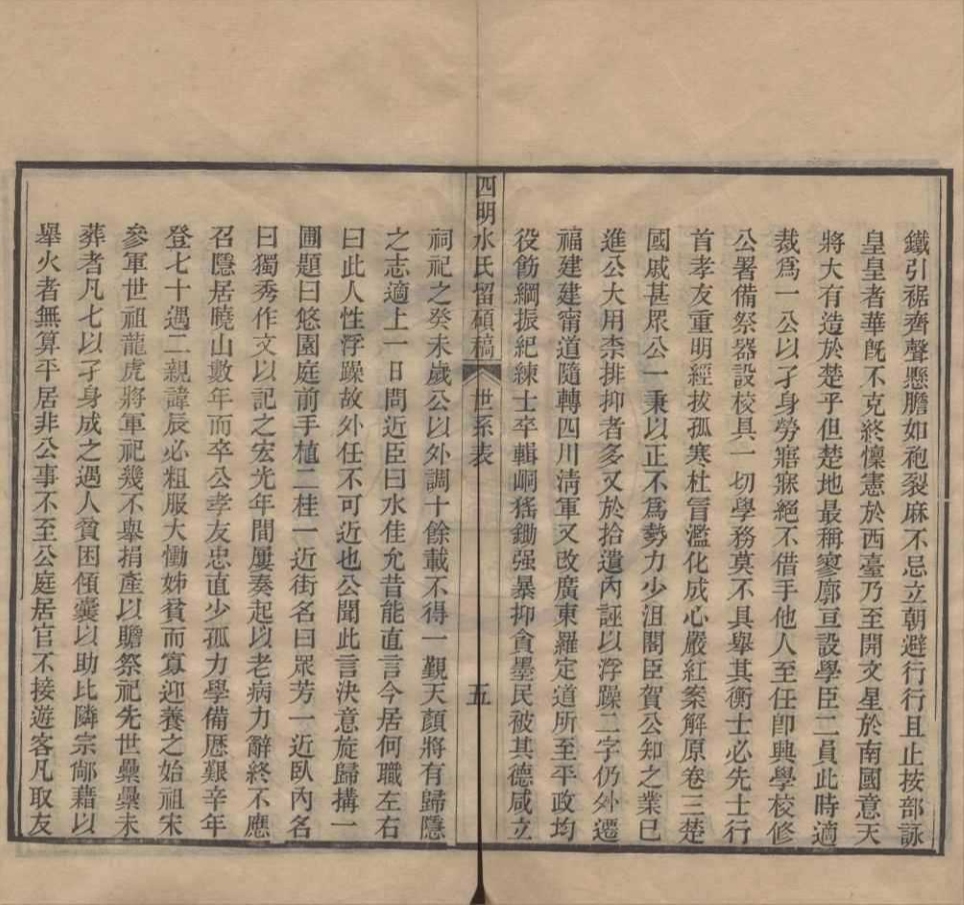 鐵引裾齊聲懸膽如袍裂麻不忌立朝避行行且止按部詠
皇皇者華旣不克終懍憲於西臺乃至開文星於南國意天
將大有造於楚乎但楚地最稱寥廓亘設學臣二員此時適
裁爲一公以孑身勞寤寐絕不借手他人至任卽興學校修
公署備祭器設校具一切學務莫不具舉其衡士必先士行
首孝友重明經拔孤寒杜冒濫化成心嚴紅案解原卷三楚
國戚甚眾公一秉以正不爲勢力少沮閣臣賀公知之業已
進公大用柰排抑者多又於拾遺內誣以浮躁二字仍外遷
福建建甯道隨轉四川清軍又改廣東羅定道所至平政均
役飭綱振紀練士卒輯峒猺鋤强暴抑貪墨民被其德咸立
四明水氏留碩稿 世系表 五
祠祀之癸未歲公以外調十餘載不得一覲天顏將有歸隱
之志適上一日問近臣曰水佳允昔能直言今居何職左右
曰此人性浮躁故外任不可近也公聞此言決意旋歸搆一
圃題曰悠園庭前手植二桂一近街名曰眾芳一近臥內名
曰獨秀作文以記之宏光年間屢奏起以老病力辭終不應
召隱居曉山數年而卒公孝友忠直少孤力學備歷艱辛年
登七十遇二親諱辰必粗服大慟姊貧而寡迎養之始祖宋
參軍世祖龍虎將軍祀幾不舉捐產以贍祭祀先世纍纍未
葬者凡七以孑身成之遇人貧困傾囊以助比隣宗鄔藉以
舉火者無算平居非公事不至公庭居官不接遊客凡取友